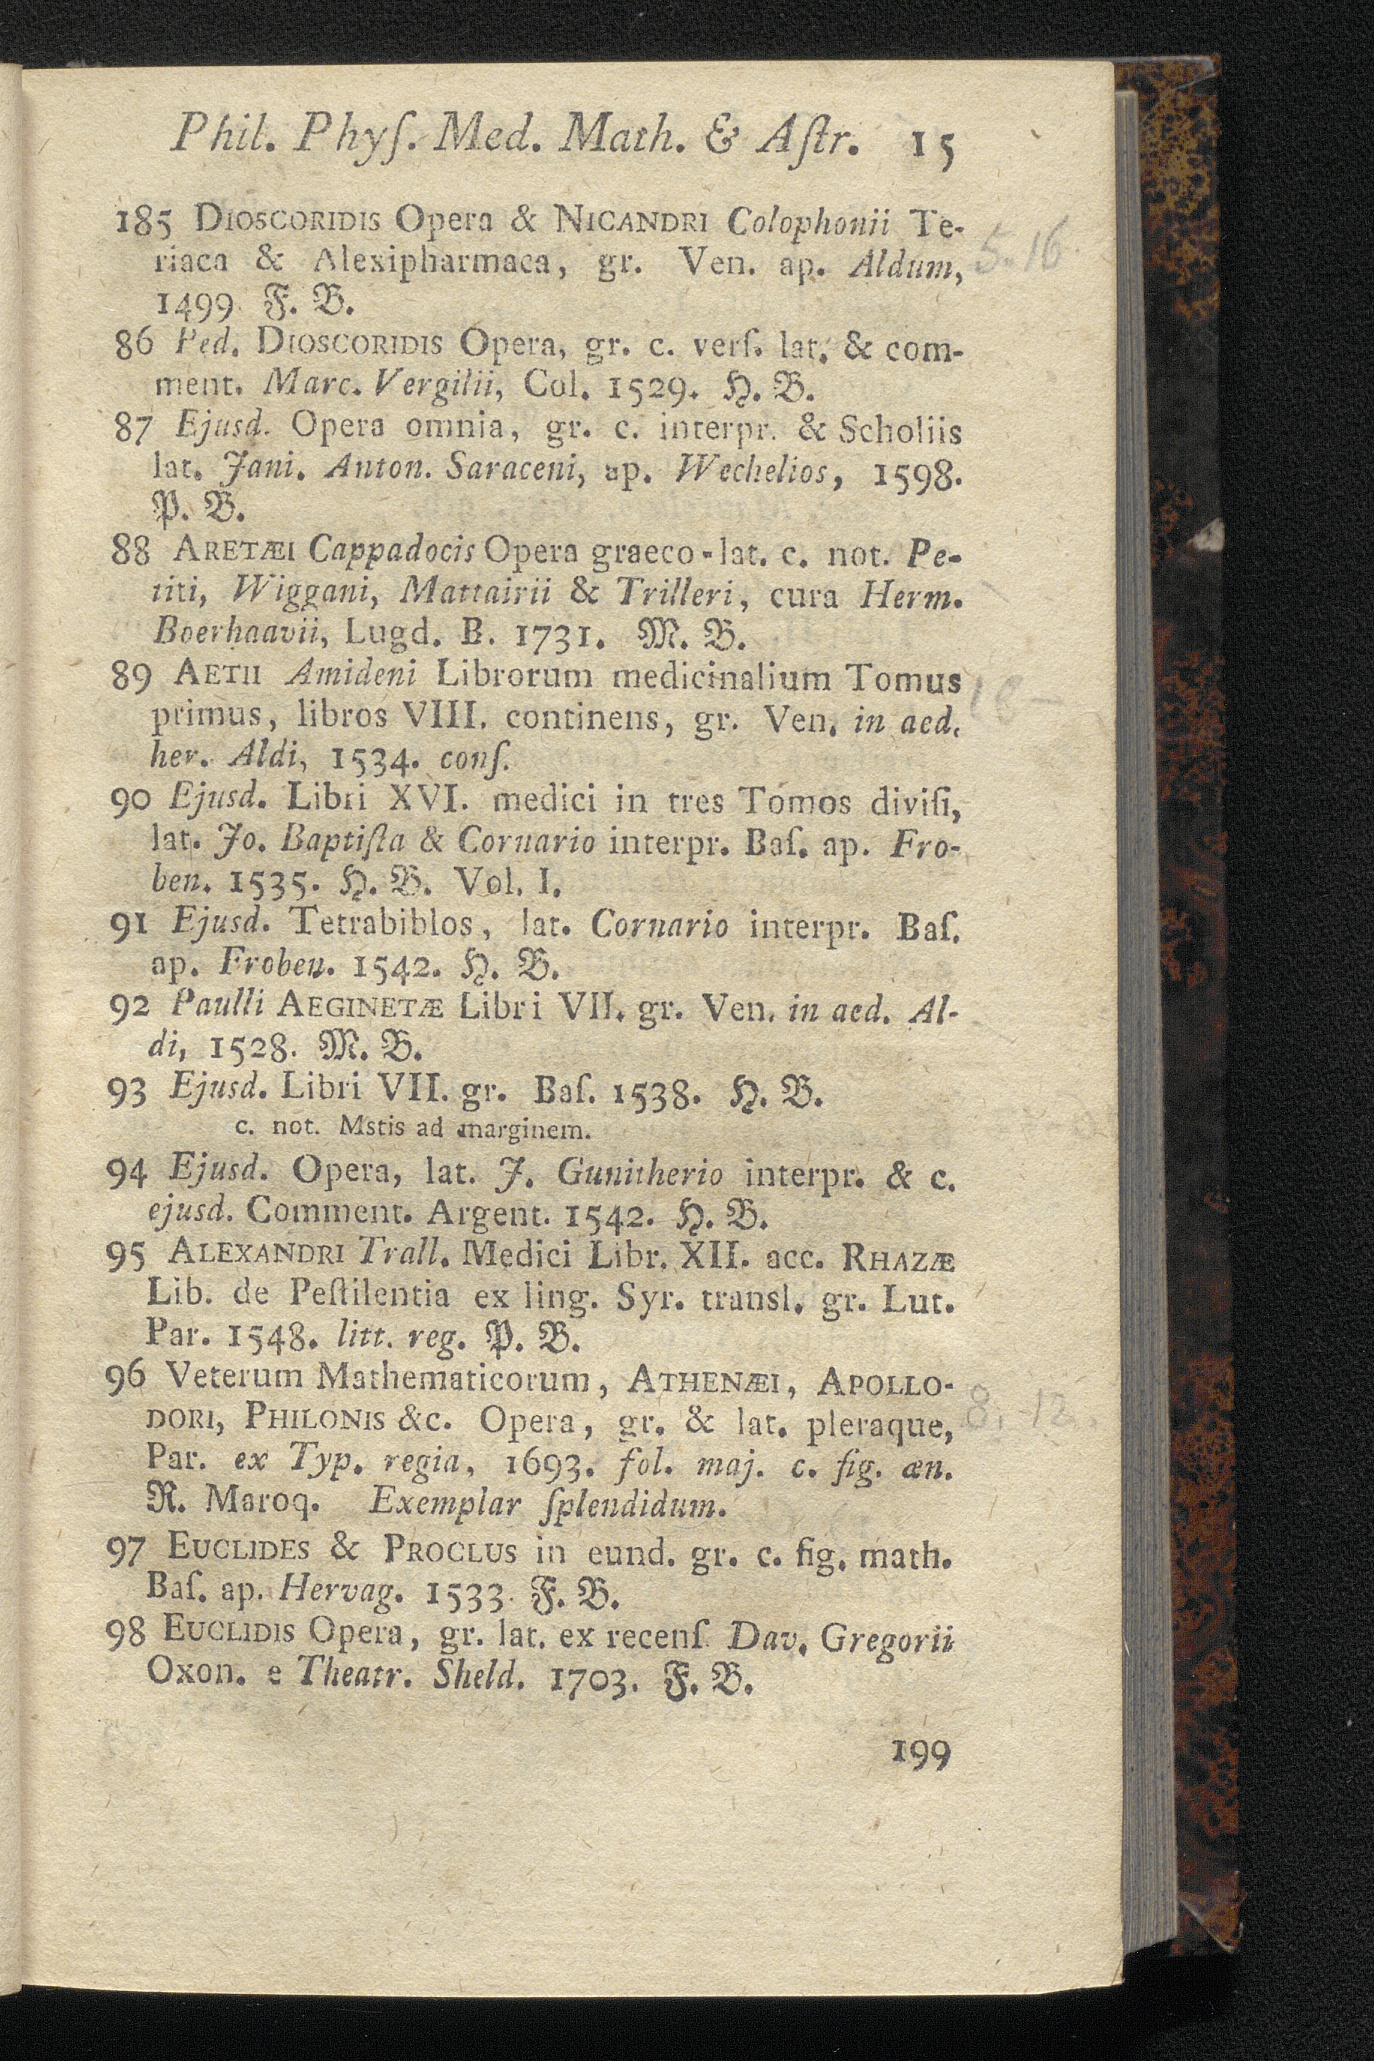 Phil. Phyſ. Med. Math. & Aſtr. 15
185 DIOSCORIDIS Opera & NICANDRI Colophonii Te-
riaca & Alexipharmaca, gr. Ven. ap. Aldum, 5.16
1499. F. B.
86 Ped. DIOSCORIDIS Opera, gr. c. verſ. lat. & com-
ment. Marc. Vergilii, Col. 1529. H. B.
87 Ejusd. Opera omnia, gr. c. interpr. & Scholiis
lat. Jani. Anton. Saraceni, ap. Wechelios, 1598.
P. B.
88 ARETÆI Cappadocis Opera graeco-lat. c. not. Pe-
titi, Wiggani, Mattairii & Trilleri, cura Herm.
Boerhaavii, Lugd. B. 1731. M. B.
89 AETII Amideni Librorum medicinalium Tomus
primus, libros VIII. continens, gr. Ven. in aed.
her. Aldi, 1534. conſ.
90 Ejusd. Libri XVI. medici in tres Tomos diviſi,
lat. Jo. Baptiſta & Cornario interpr. Baſ. ap. Fro-
ben. 1535. H. B. Vol. I.
91 Ejusd. Tetrabiblos, lat. Cornario interpr. Baſ.
ap. Froben. 1542. H. B.
92 Paulli AEGINETÆ Libri VII. gr. Ven. in aed. Al-
di, 1528. M. B.
93 Ejusd. Libri VII. gr. Baſ. 1538. H. B.
c. not. Mstis ad marginem.
94 Ejusd. Opera, lat. J. Gunitherio interpr. & c.
ejusd. Comment. Argent. 1542. H. B.
95 ALEXANDRI Trall. Medici Libr. XII. acc. RHAZÆ
Lib. de Peſtilentia ex ling. Syr. transl. gr. Lut.
Par. 1548. litt. reg. P. B.
96 Veterum Mathematicorum, ATHENÆI, APOLLO-
DORI, PHILONIS &c. Opera, gr. & lat. pleraque, 8.12.
Par. ex Typ. regia, 1693. fol. maj. c. fig. æn.
R. Maroq. Exemplar ſplendidum.
97 EUCLIDES & PROCLUS in eund. gr. c. fig. math.
Baſ. ap. Hervag. 1533. F. B.
98 EUCLIDIS Opera, gr. lat. ex recenſ. Dav. Gregorii
Oxon. e Theatr. Sheld. 1703. F. B.
199